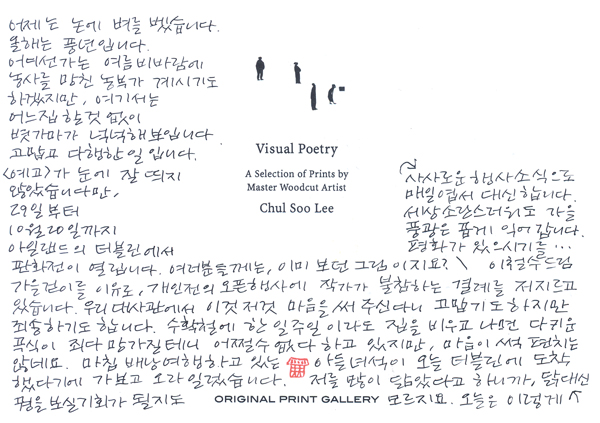 어제는 논에 벼를 벴습니다.
올해는 풍년입니다.
어디선가는 여름비바람에
농사를 망친 농부가 계시기도
하겠지만, 여기서는
어느집 할것 없이
볏가마가 넉넉해보입니다
고맙고 다행한 일 입니다.
<예고>가 눈에 잘 띄지
않았습니다만,
29일부터
10월 20일까지
아일랜드의 더블린에서
판화전이 열립니다. 여러분들께는, 이미 보던 그림이지요?
가을걷이를 이유로, 개인전의 오픈행사에 작가가 불참하는 결례를 저지르고
있습니다. 우리대사관에서 이것저것 마음을 써주신다니 고맙기도 하지만
죄송하기도 합니다. 수확철에 한 일주일이라도 집을 비우고 나면 다 키운
곡식이 죄다 망가질테니 어쩔수 없다 하고 있지만, 마음이 썩 편치는
않네요. 마침 배낭여행하고 있는 아들녀석이 오늘 더블린에 도착
했다기에 가보고 오라 일렀습니다. 저를 많이 닮았다고 하니까, 닭대신
꿩을 보실기회가 될지도 모르지요. 오늘은 이렇게
사사로운 행사소식으로
매일엽서 대신합니다.
세상소란스러워도 가을
풍광은 곱게 익어갑니다.
평화가 있으시기를…
이철수드림
Visual Poetry
A Selection of Prints by
Master Woodcut Artist
Chul Soo Lee
ORIGINAL PRINT GALLERY